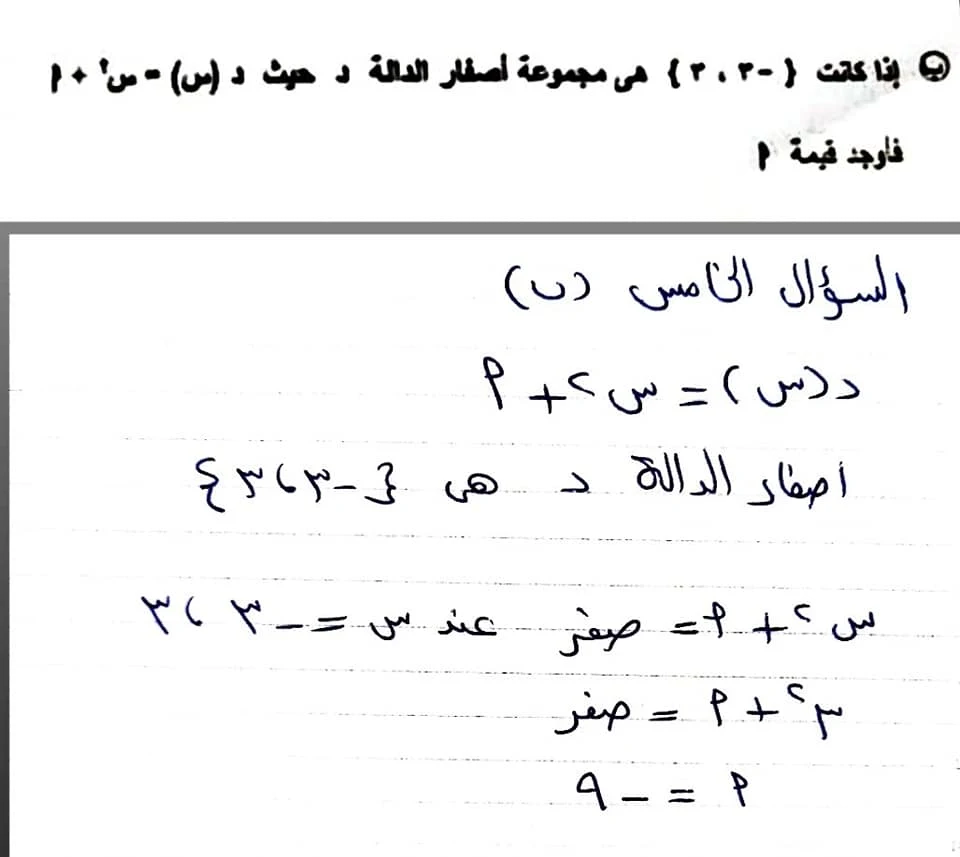 ب إذا كانت { -٣ ، ٣ } هى مجموعة أصفار الدالة د حيث د (س) = س٢ + م
فأوجد قيمة م
السؤال الخامس (ب)
د (س) = س٢ + م
أصفار الدالة د هى { -٣ ، ٣ }
س٢ + م = صفر عند س = -٣ ، ٣
٣٢ + م = صفر
م = - ٩